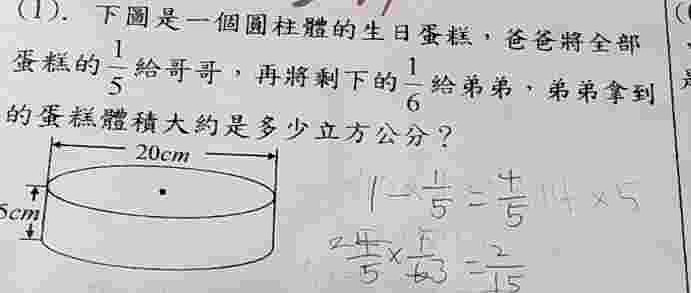 (1). 下圖是一個圓柱體的生日蛋糕，爸爸將全部
蛋糕的 1/5 給哥哥，再將剩下的 1/6 給弟弟，弟弟拿到
的蛋糕體積大約是多少立方公分？
20cm
5cm
1 - 1/5 = 4/5
4/5 × 1/6 = 2/15